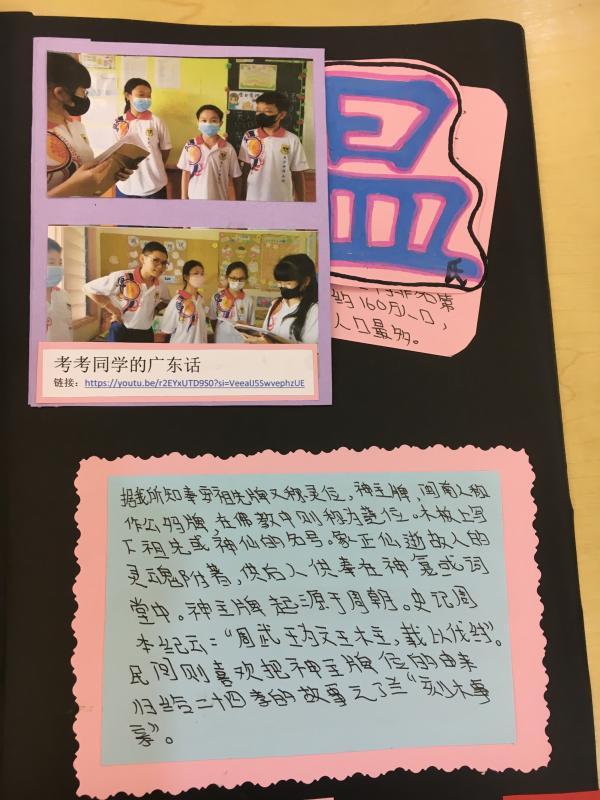 昷
氏
名第
160万人口，
人口最多。
考考同学的广东话
链接：https://youtu.be/r2EYxUTD9S0?si=VeeaIJ5SwvephzUE
据我所知奉 祖先牌又称灵位，神主牌，闽南人称
作公妈牌，在佛教中则称为莲位。木板上写
下祖先或神仙的名号。象正仙逝故人的
灵魂附着，供后人供奉在神龛或词
堂中。神主牌起源于周朝。史记周
本纪云：“周武王为文王木主，载以伐纣”。
民间则喜欢把神主牌位的由来
归给二十四孝的故事之丁兰“刻木事
亲》。